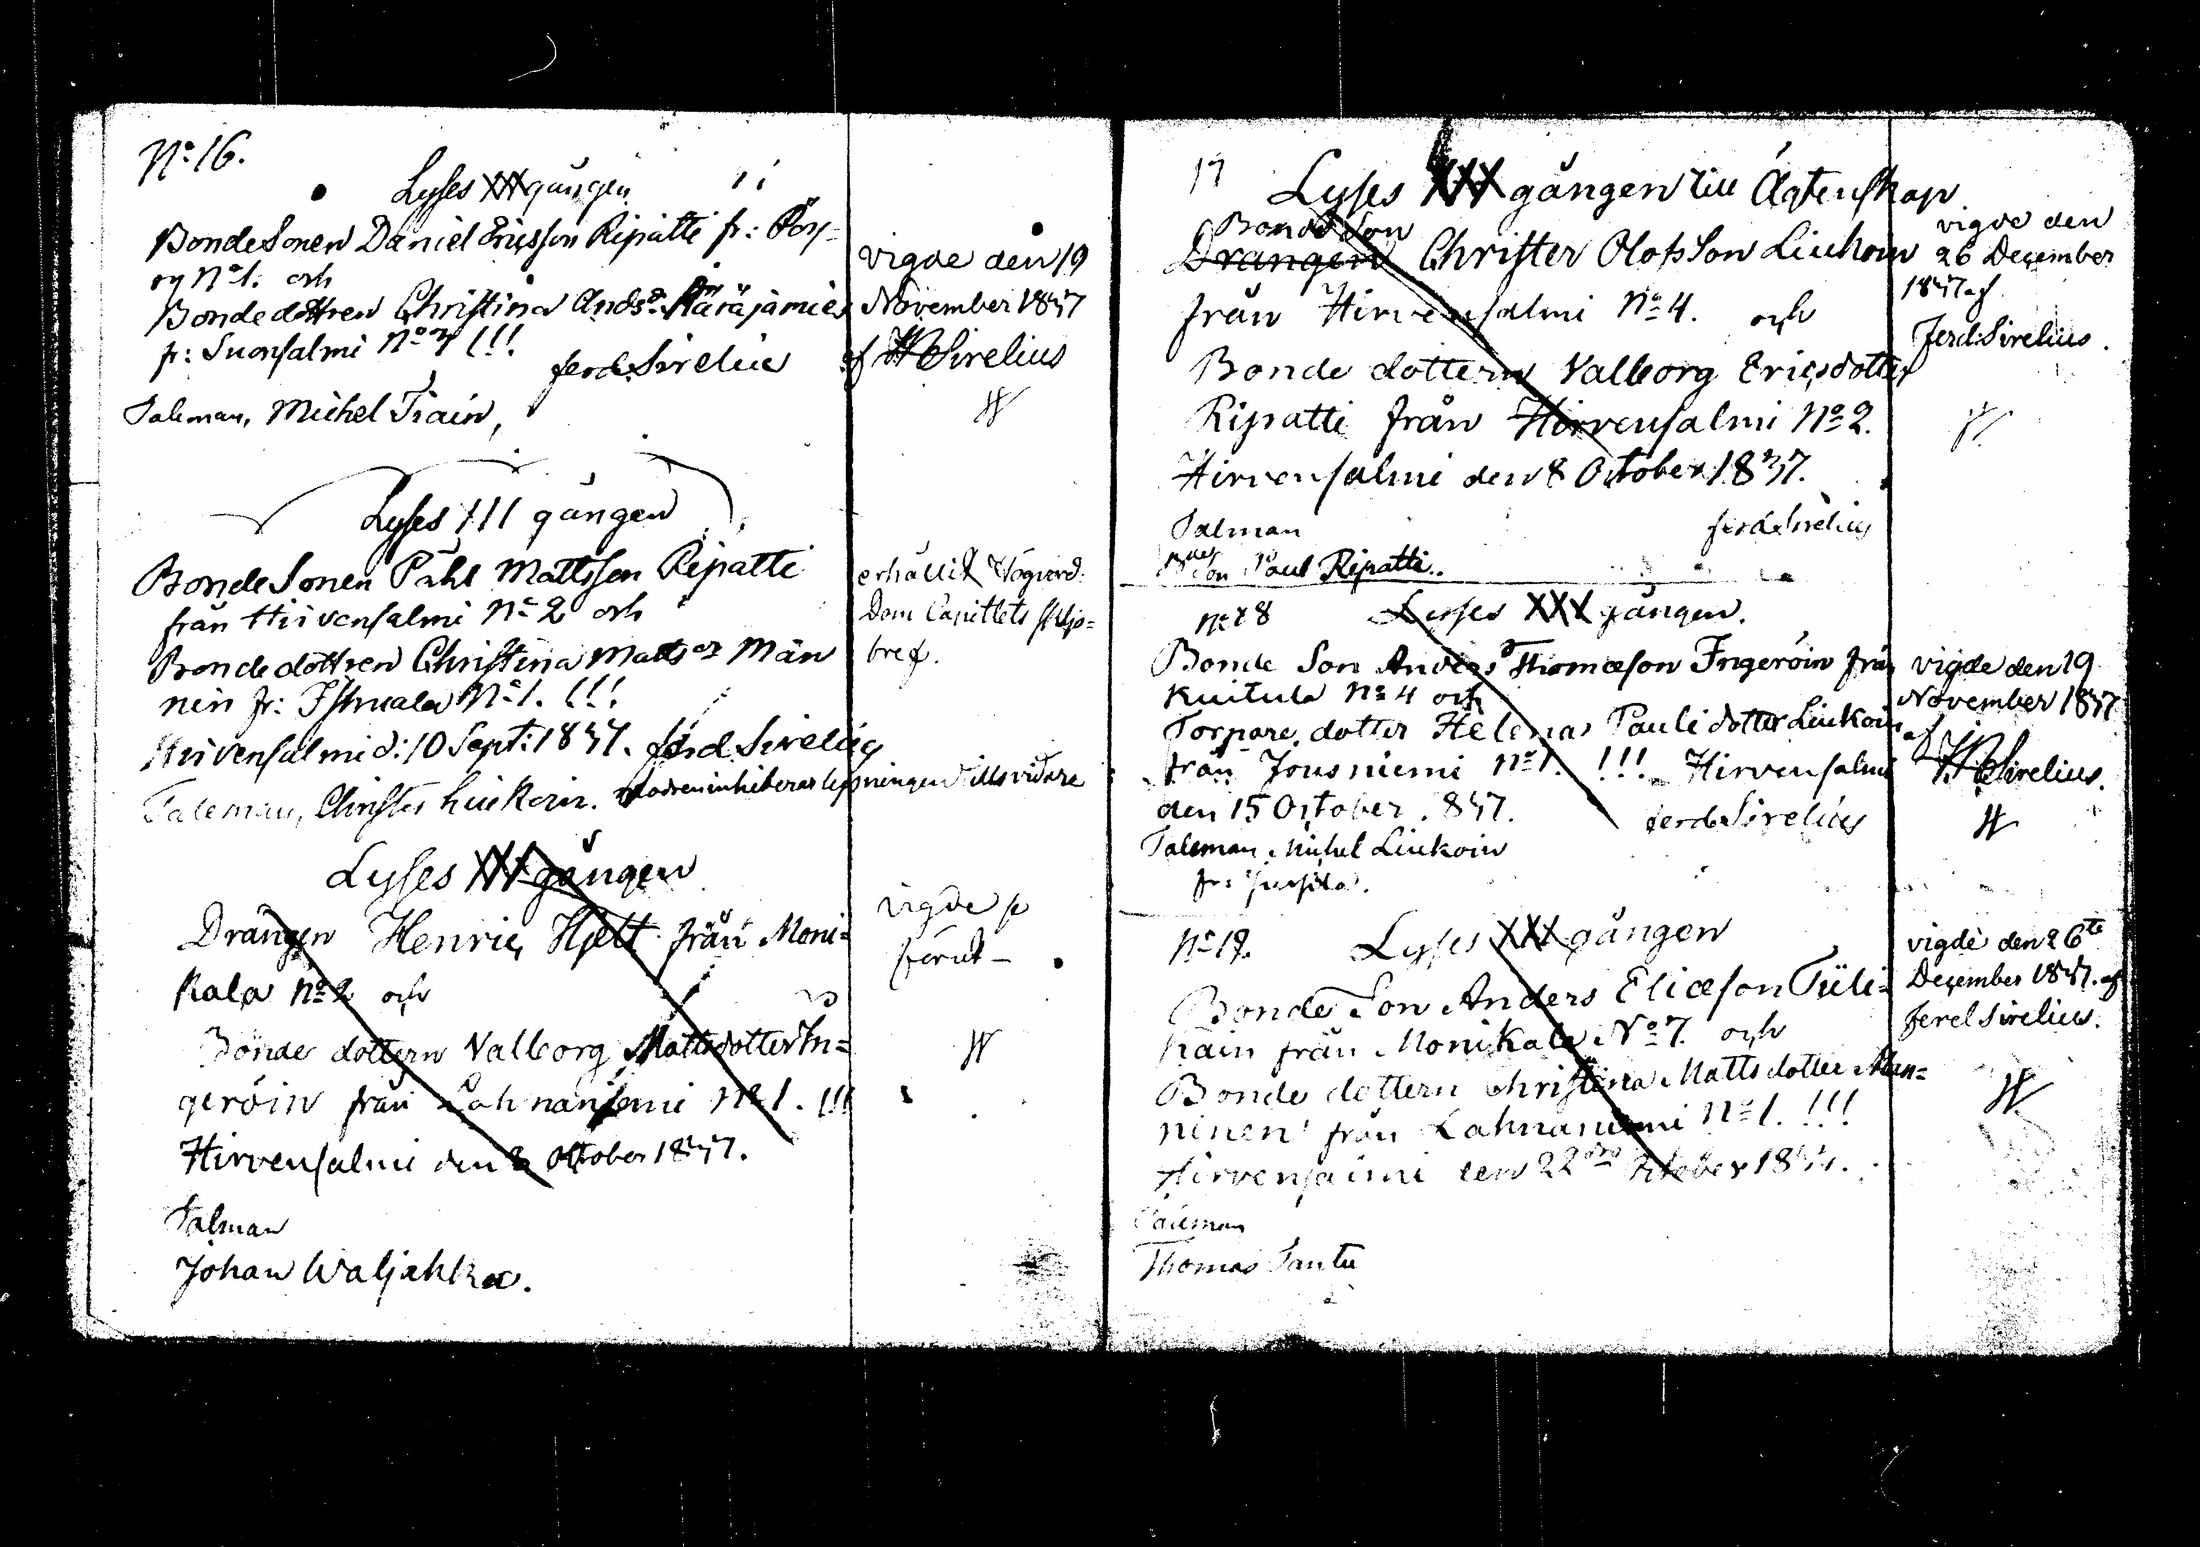 No: 16.
Lyses XXX gången
Bonde Sonen Daniel Ericsson Ripatti fr: Pöy=
ry No 1. och
Bonde dottren Christina Andsdr Käräjämies
fr: Suonsalmi No 3 !!!
ferd. Sirelius
Taleman, Michel Tiain,
vigde den 19
November 1837
af Sirelius
Lyses III gången
Bonde Sonen Påhl Mattsson Ripatti
från Hirvensalmi No 2 och
Bonde dottren Christina Matsdr Män
nin fr: Istruala No 1. !!!
Hirvensalmi d: 10 Sept: 1837. ferd Sirelius
Taleman, Christer Liukoin. inhiberas lysningen tillsvidare
erhållit Högvörd.
Dom Capitlets skiljo=
bref.
Lyses XXX gången
Drängen Henric Hjelt från Moni=
kala No 2 och
Bonde dottern Valborg Mattsdotter In=
geröin från Lahnaniemi No 1. !!!
Hirvensalmi den 8 October 1837.
Talman
Johan Waljakka.
vigde
förut –
17
Lyses XXX gången till Ägtenskap
Bonde Son
Drängen Christer Olofsson Liukoin
från Hirvensalmi No 4. och
Bonde dottern Valborg Ericsdotter
Ripatti från Hirvensalmi No 2.
Hirvensalmi den 8 October 1837.
Talman ferd. Sirelius
Son Paul Ripatti.
vigde den
26 December
1837 af
Ferd: Sirelius.
No 18 Lyses XXX gången.
Bonde Son Anders Thomæson Ingeröin från
Kuitula No 4 och
Torpare dotter Helena Pauli dotter Liukoin
från Jousniemi No 1. !!! Hirvensalmi
den 15 October 1837. ferd. Sirelius
Taleman Michel Liukoin
vigde den 19
November 1837
af
Sirelius.
No 19. Lyses XXX gången
Bonde Son Anders Eliæson Tüli=
kain från Monikala No 7. och
Bonde dottern Christina Matts dotter Män=
ninen från Lahnaniemi No 1. !!!
Hirvensalmi den 22dra October 1837.
Taleman
Thomas Santu
vigde den 26te
December 1837. af
ferd Sirelius.